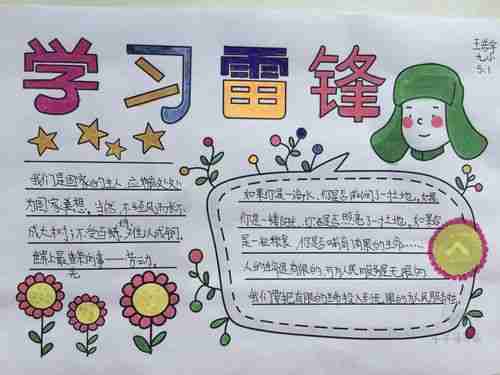 学习雷锋
九小
5.1
我们是国家的主人,应该处处
为国家着想。当然,不经风雨,长不
成大树;不受百炼,难以成钢。
世界上最美的事——劳动。
如果你是一滴水,你是否滋润了一寸土地。如果
你是一缕阳光,你是否照亮了一寸土地。如果你
是一粒粮食,你是否哺育有用的生命……
人的生命是有限的,可为人民服务是无限的
我们要把有限的生命投入到无限的为人民服务